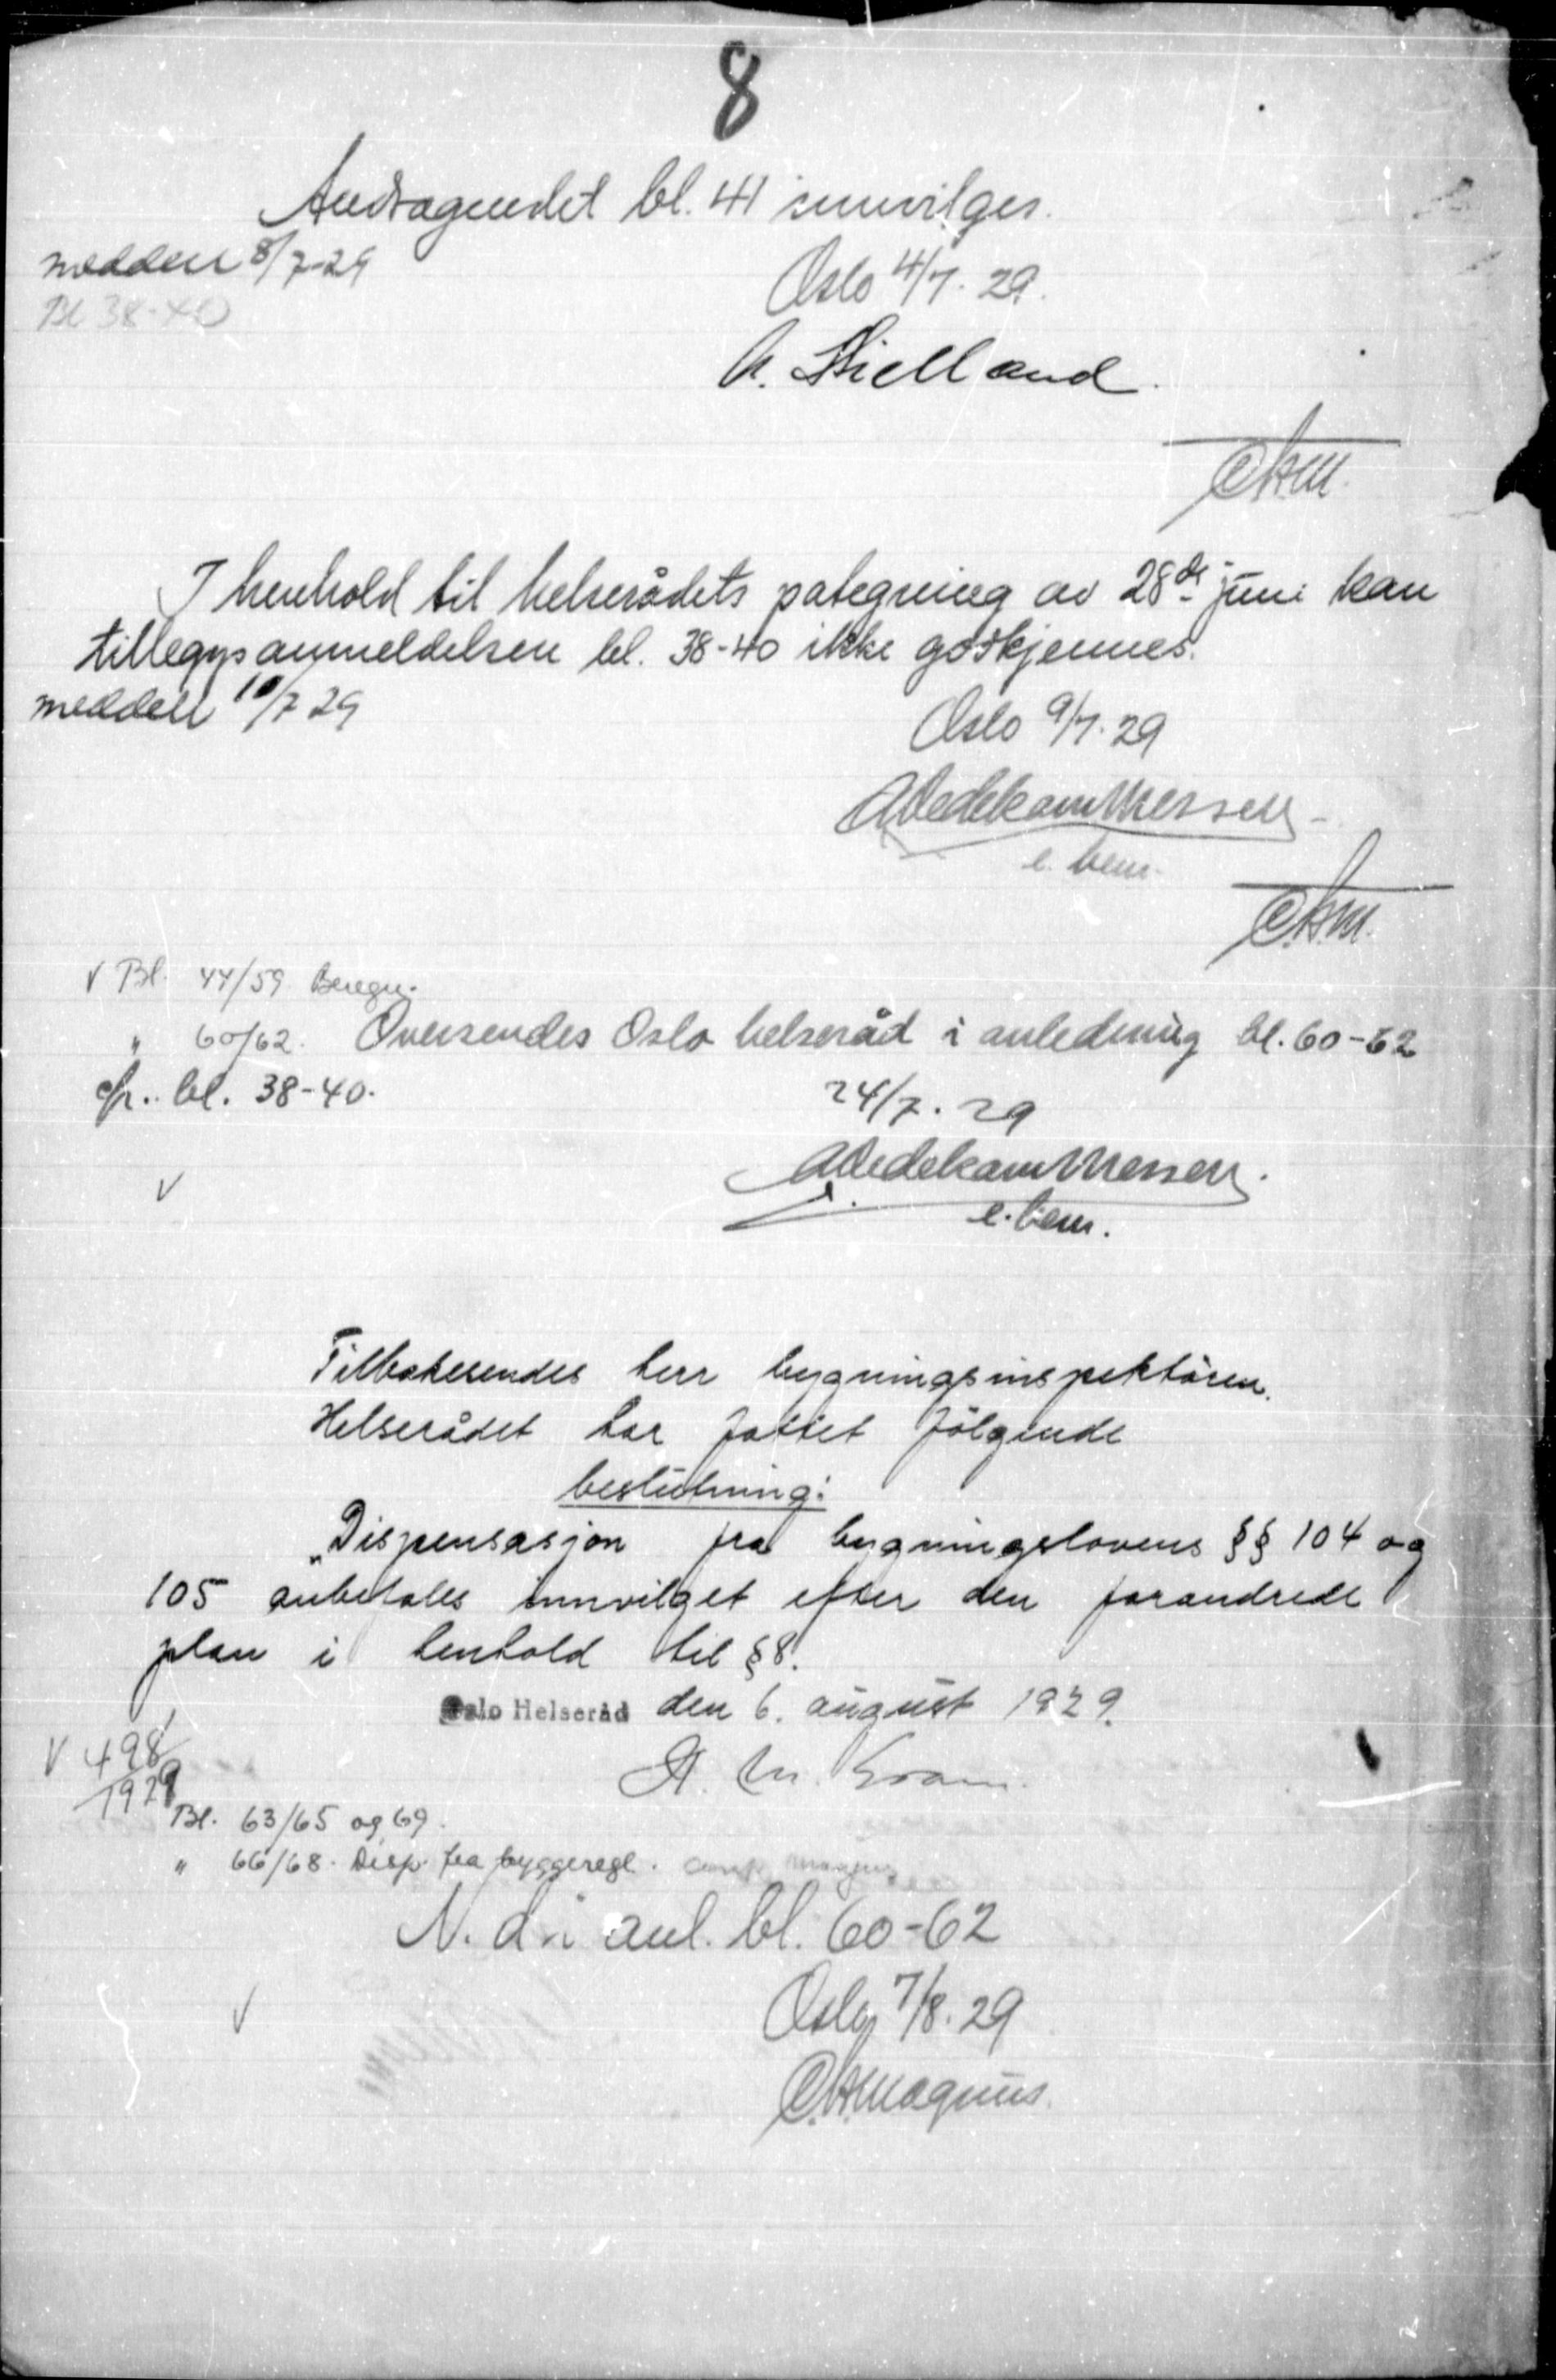 8
Andragendet bl. 41 innvilges.
meddelt 8/7-29
Bl 38-40
Oslo 4/7. 29.
A. Kielland.
CHM.
I henhold til helserådets påtegning av 28de juni kan
tilleggsanmeldelsen bl. 38-40 ikke godkjennes.
meddelt 10/7 29
Oslo 9/7. 29
AWedekamThesen
e. bem.
CHM.
V Bl. 44/59 Beregn.
" 60/62. Oversendes Oslo helseråd i anledning bl. 60-62
cfr. bl. 38-40.
24/7. 29
V
e. bem.
Tilbakesendes herr bygningsinspektören.
Helserådet har fattet fölgende
beslutning:
„Dispensasjon fra bygningslovens §§ 104 og
105 anbefales innvilget efter den forandrede
plan i henhold til § 8.
Oslo Helseråd den 6. august 1929.
V 498/1929
Bl. 63/65 og 69.
" 66/68. Disp. fra byggeregl.
N. d. i anl. bl. 60-62
V
Oslo 7/8. 29
CHMagnus.